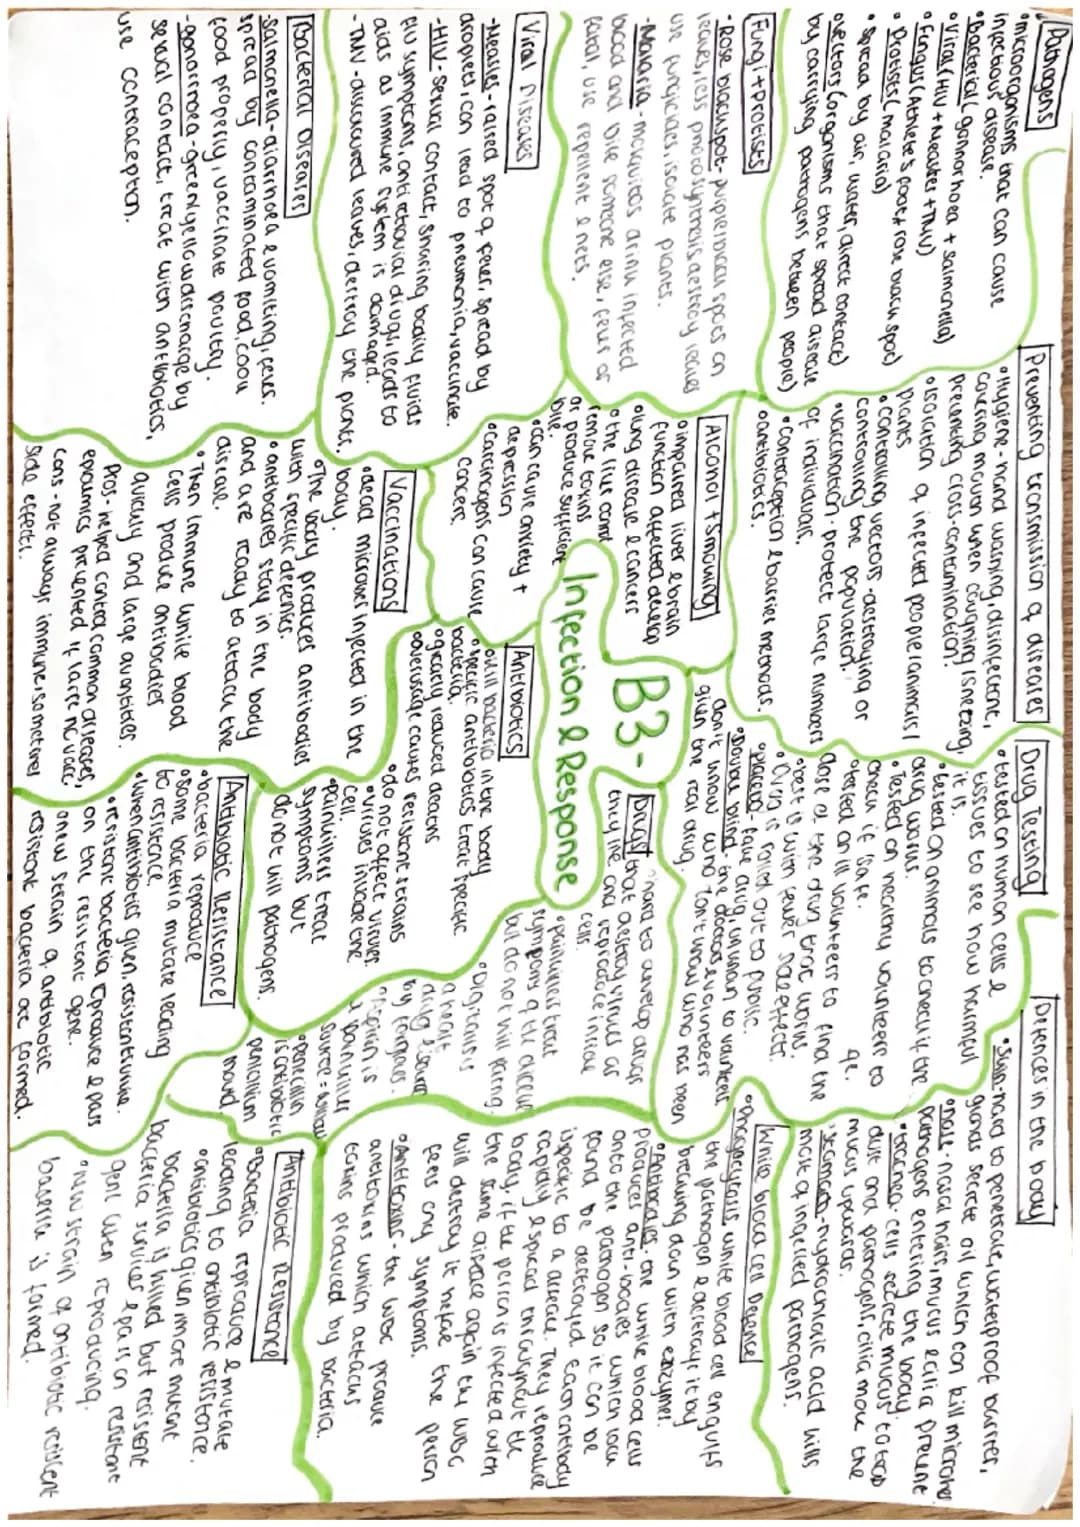 Pathogens
•microorganisms that can cause
infectious disease.
•Bacterial (gonnorhoea + salmonella)
•Viral (HIV + Measles + TMV)
•Fungus (Athlete's foot, rose black spot)
•Protists (malaria)
•Spread by air, water, direct contact)
•vectors (organisms that spread disease
by carrying pathogens between people)
Preventing transmission of diseases
•Hygiene - hand washing, disinfectant,
covering mouth when coughing/sneezing,
preventing cross-contamination.
•isolation of infected people/animals/
plants
•controlling vectors - destroying or
controlling the population.
•vaccination - protect large numbers
of individuals.
•contraception & barrier methods.
•antibiotics.
Drug Testing
•tested on human cells &
tissues to see how harmful
it is.
•tested on animals to check if the
drug works.
•Tested on healthy volunteers to
check if safe.
•tested on ill volunteers to find the
dose of the drug that works.
•best is with fewer side effects.
•Drug is rolled out to public.
•placebo - fake drug
•Double blind - the doctors & volunteers
don't know who has been
given the real drug.
Defences in the body
•Skin - hard to penetrate, waterproof barrier,
glands secrete oil which can kill microbes
•nose - nasal hairs, mucus & cilia prevent
pathogens entering the body.
•trachea - cells secrete mucus to trap
dust and pathogens, cilia move the
mucus upwards.
•stomach - hydrochloric acid kills
most of ingested pathogens.
Fungi + Protists
-Rose blackspot - purple/black spots on
leaves, less photosynthesis destroy leaves
use fungicides, isolate plants.
-Malaria - mosquitos drink infected
blood and bite someone else, fever or
fatal, use repellent & nets.
Alcohol + Smoking
•impaired liver & brain
function affected develop
•lung disease & cancers
•the liver cant
remove toxins
or produce sufficient
bile.
•can cause anxiety +
depression
•Carcinogens can cause
cancers.
B3-
Infection & Response
Drugs
•hard to develop drugs
that destroy viruses as
they live and reproduce inside
cells.
•painkillers treat
symptoms of the disease
but do not kill
•Digitalis is
a heart
drug
•aspirin is
a painkiller
•penicillin
is antibiotic
penicillium
mould
White blood cell Defence
•Phagocytosis white blood cell engulfs
the pathogen & destroys it by
breaking down with enzymes.
•Antibodies - the white blood cells
produces anti-bodies which lock
onto the pathogen so it can be
found & destroyed. Each antibody
is specific to a disease. They reproduce
rapidly & spread throughout the
body, if the person is infected with
the same disease again the WBC
will destroy it before the person
feels any symptoms.
•Antitoxins - the WBC produce
antitoxins which attacks
toxins produced by bacteria.
Viral Diseases
-Measles - raised spots, fever, spread by
droplets, can lead to pneumonia, vaccinate.
-HIV - Sexual contact, sharing bodily fluids
flu symptoms, antiretrovial drugs, leads to
aids as immune system is damaged.
-TMV - discoloured leaves, destroy the plants.
Vaccinations
•dead microbes injected in the
body.
•The body produces antibodies
with specific defences.
•antibodies stay in the body
and are ready to attack the
disease.
•Then immune white blood
cells produce antibodies
quickly and large quantities.
Pros - helped control common diseases,
epidemics prevented if large no. vacc.
cons - not always immune, sometimes
side effects.
Antibiotics
•kill bacteria in the body
•specific antibiotics treat specific
bacteria.
•greatly reduced deaths
•overusage causes resistant strains
•do not affect viruses
•viruses invade the
cell.
•painkillers treat
symptoms but
do not kill pathogens.
Bacterial Diseases
-Salmonella - diarrhoea & vomiting, fever.
spread by contaminated food, cook
food properly, vaccinate poultry.
-gonorrhoea - green/yellow discharge by
sexual contact, treat with antibiotics,
use contraception.
Antibiotic Resistance
•bacteria reproduce
•some bacteria mutate leading
to resistance.
•when antibiotics given, resistant survive.
•resistant bacteria reproduce & pass
on the resistant gene.
•new strain of antibiotic
resistant bacteria are formed.
Antibiotic Resistance
•Bacteria reproduce & mutate
leading to antibiotic resistance.
•antibiotics given more mutant
bacteria is killed but resistant
bacteria survives & pass on resistant
gene when reproducing.
•new strain of antibiotic resistant
bacteria is formed.